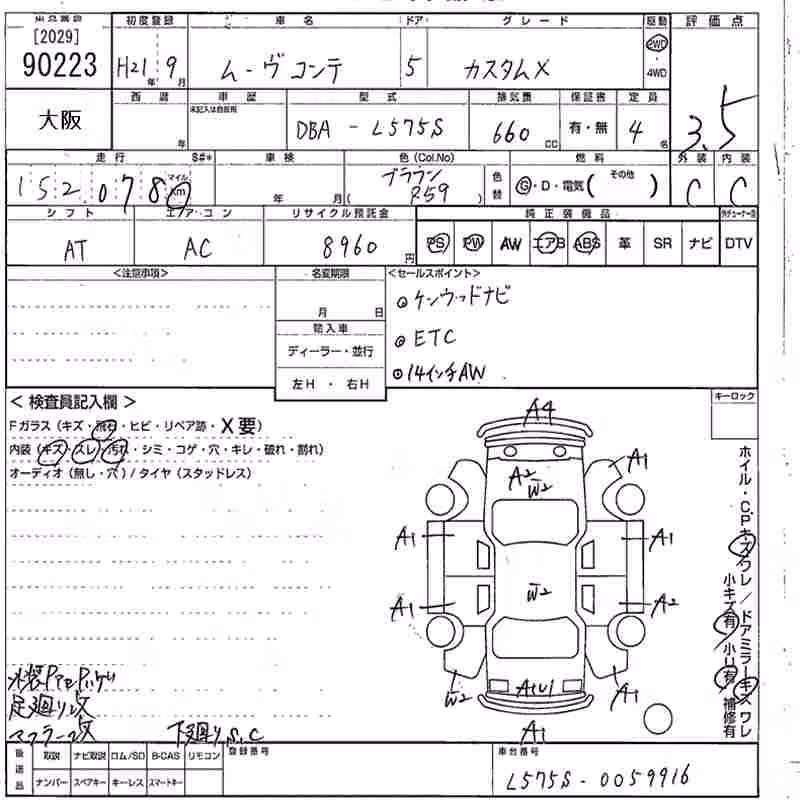 [2029]
90223
初度登録 車名 ドア グレード 駆動 評価点
H21年 9月 ムーヴコンテ 5 カスタムX 2WD ・4WD 3.5
大阪
西暦 車歴 型式 排気量 保証書 定員
未記入は自家用
年 DBA - L575S 660 CC 有・無 4名
走行 S#* 車検 色(Col.No) 燃料 外装 内装
152,078 マイル Km 年 月 ブラウン ( R59 ) 色替 G・D・電気( その他 ) C C
シフト エアコン リサイクル預託金 純正装備品
AT AC 8960円 PS PW AW エアB ABS 革 SR ナビ DTV
<注意事項> 名変期限 <セールスポイント>
月 日
輸入車
ディーラー・並行
左H ・ 右H
ケンウッドナビ
ETC
14インチAW
キーロック
< 検査員記入欄 >
Fガラス (キズ・飛石・ヒビ・リペア跡・X要)
内装 (キズ・スレ・汚れ・シミ・コゲ・穴・キレ・破れ・割れ)
オーディオ (無し・穴) / タイヤ (スタッドレス)
A4
A2 W2
A1
A1 A1
W2
A1 A2
W2 A1U1 A1
A1
ホイル・C.P.キズワレ/ドアミラーキズワレ
小キズ有 小リ有 補修有
足廻り改
マフラー改 下廻りS,C
後送品 取説 ナビ取説 ロム/SD B-CAS リモコン 登録番号 車台番号
ナンバー スペアキー キーレス スマートキー
L575S-0059916